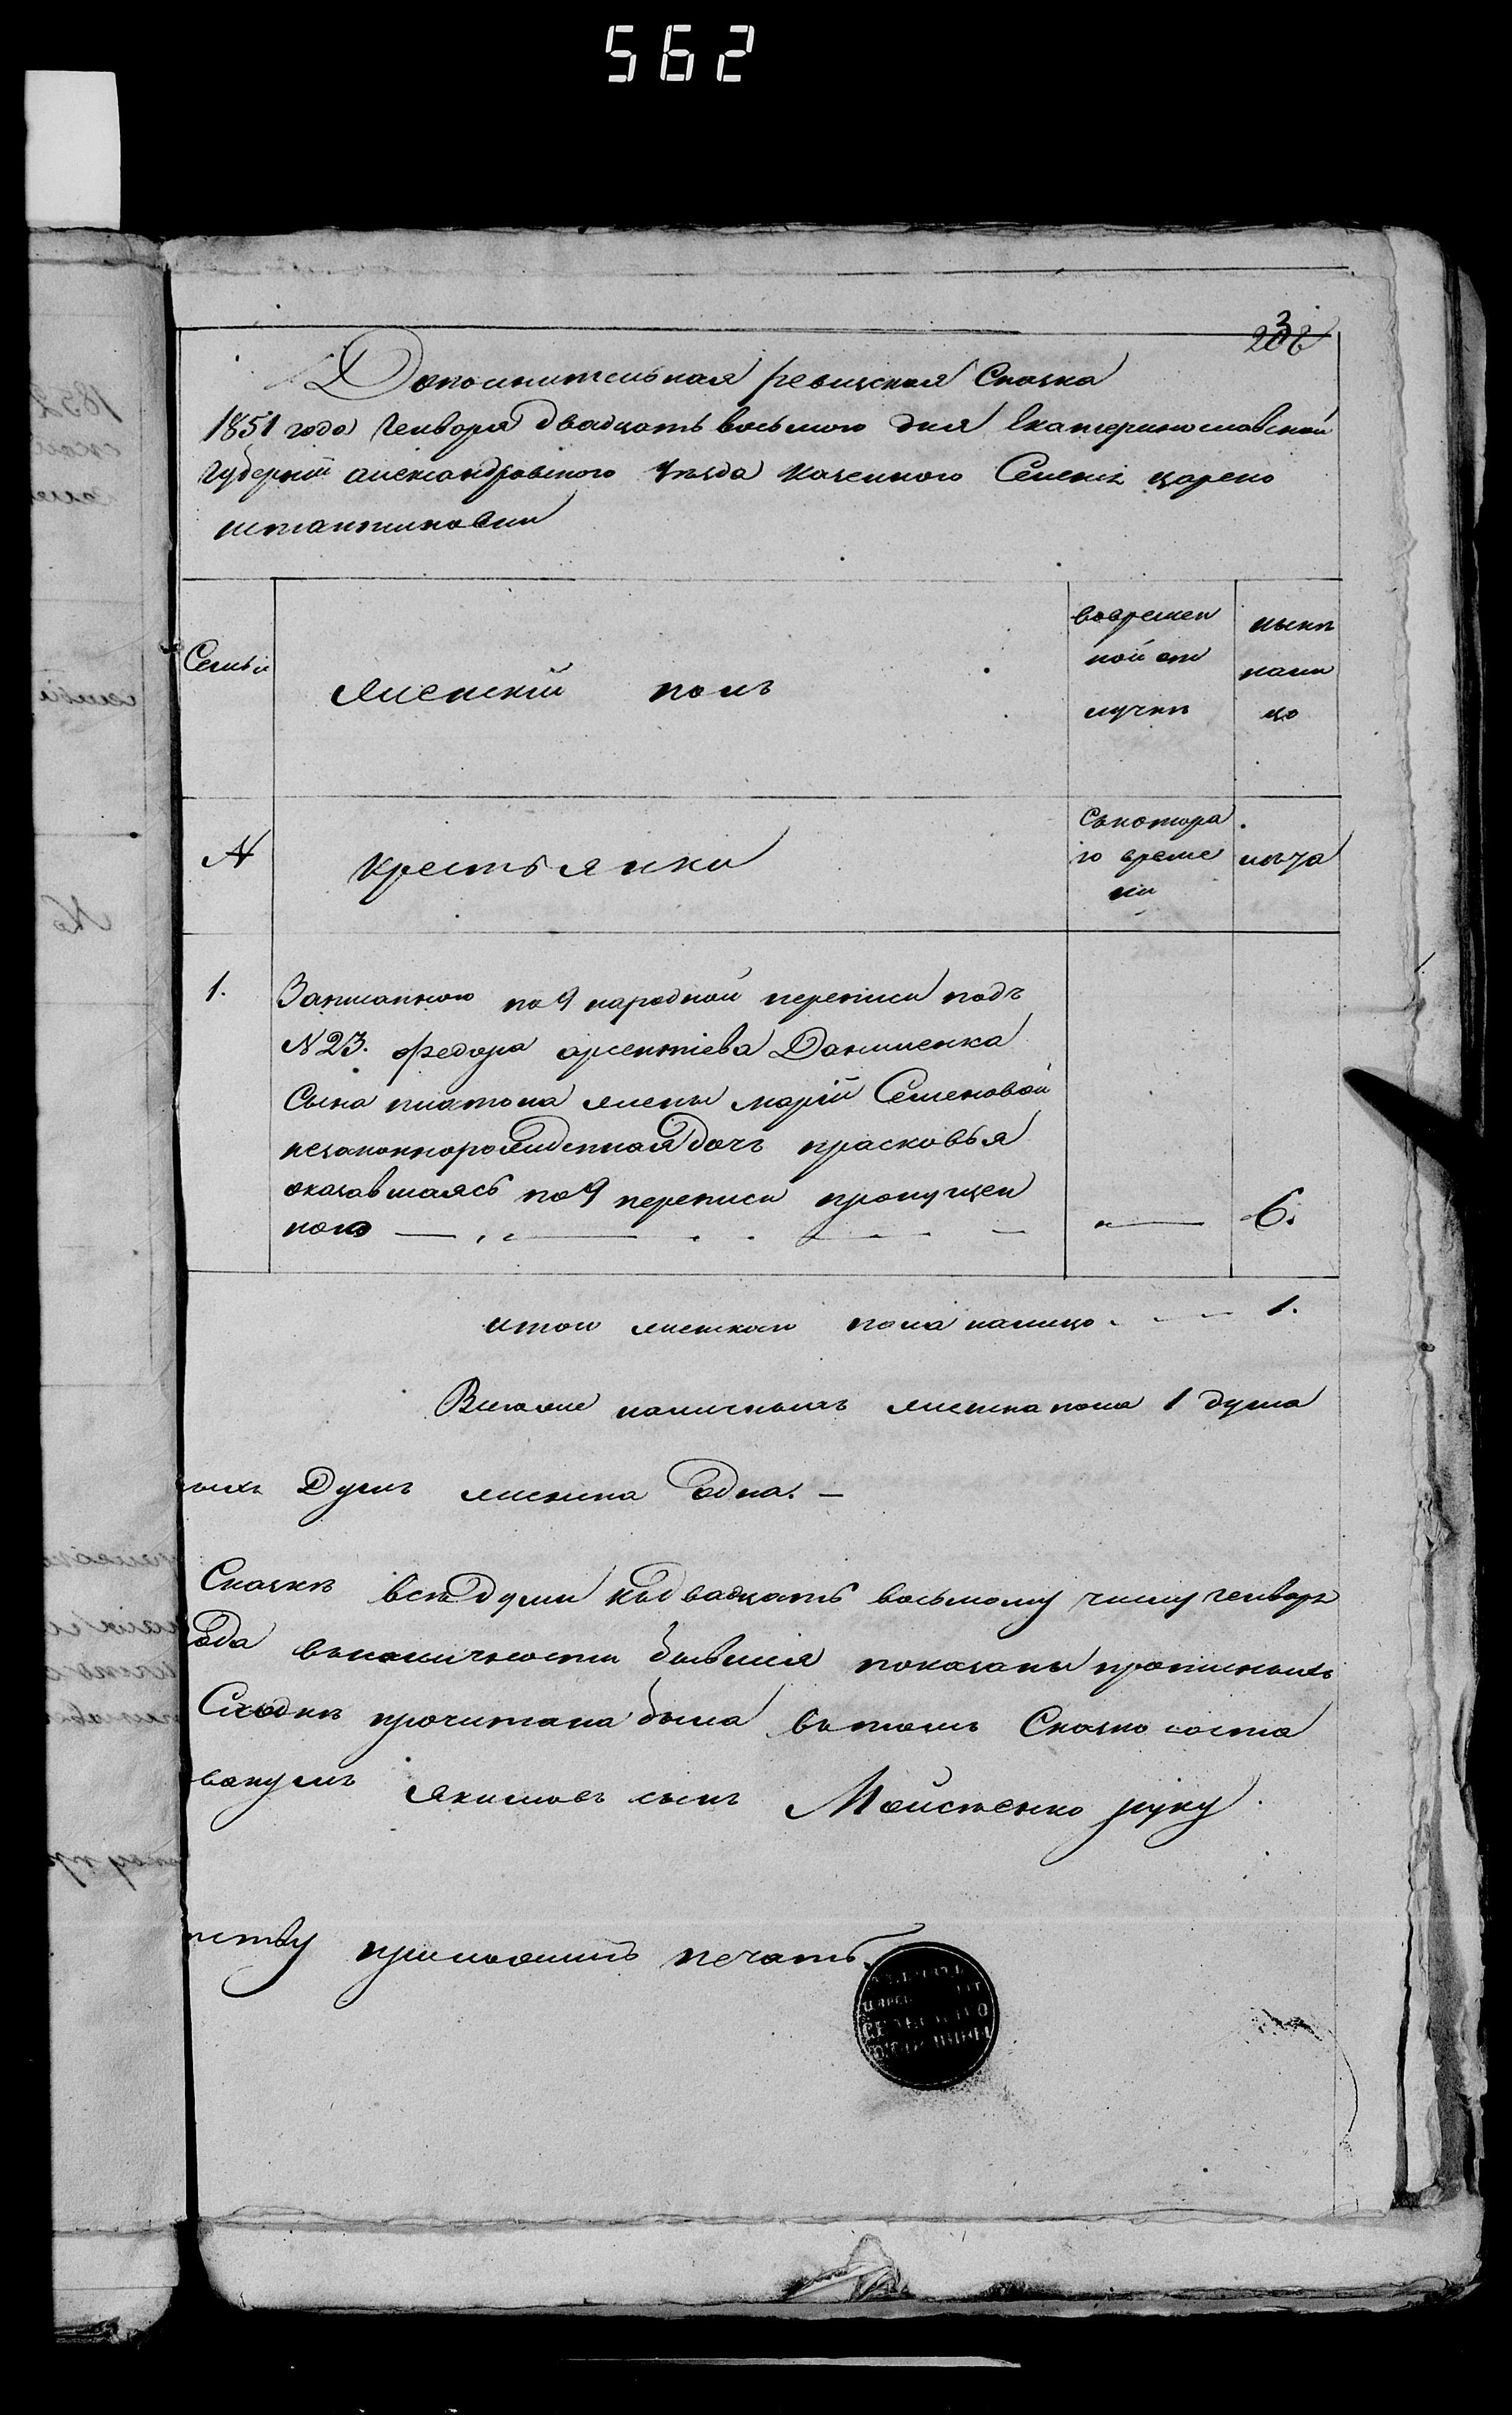 562
3
208
Дополнительная ревизская Сказка
1851 года Генваря двадцать восьмого дня Екатеринославской
Губернiи александровского Уезда казенного Селенiя царево
нстантиновки
Семьи
женскiй полъ
вовремен
ной от
лучкѣ
нынѣ
нали
цо
N
крестьянки
Съкотора
го време
ни
лѣта
1.
Записанного по 9 народной переписи подъ
N 23. Федора арсентiева Даниленка
Сына платона жены марiи Семеновой
незаконнорожденная дочъ прасковья
оказавшаясь по 9 переписи пропущен
ною
6.
итого женского пола налицо 1.
Всего же наличныхъ женска пола 1 душа
ныхъ Душъ женска Одна. —
Сказкѣ всѣ души къдвадцать восьмому числу генваря
года въналичности бывшiя показаны прописныхъ
Сходкѣ прочитана была въ томъ Сказко соста
вакумъ Якимовъ сынъ Моисеенко руку
нству приложить печать.